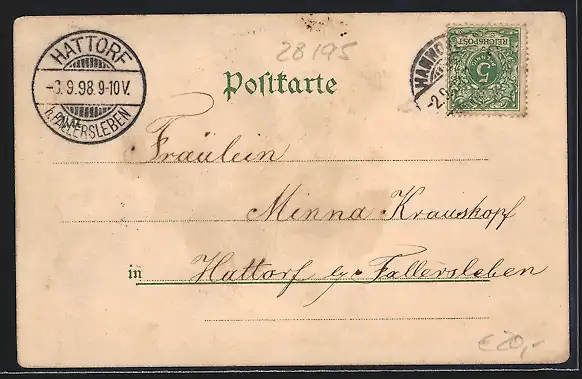 HATTORF
-3.9.98.9-10V.
FALLERSLEBEN
28195
Postkarte
REICHSPOST
5
Fräulein
Minna Krauskopf
in Hattorf Fallersleben
€ 20,-